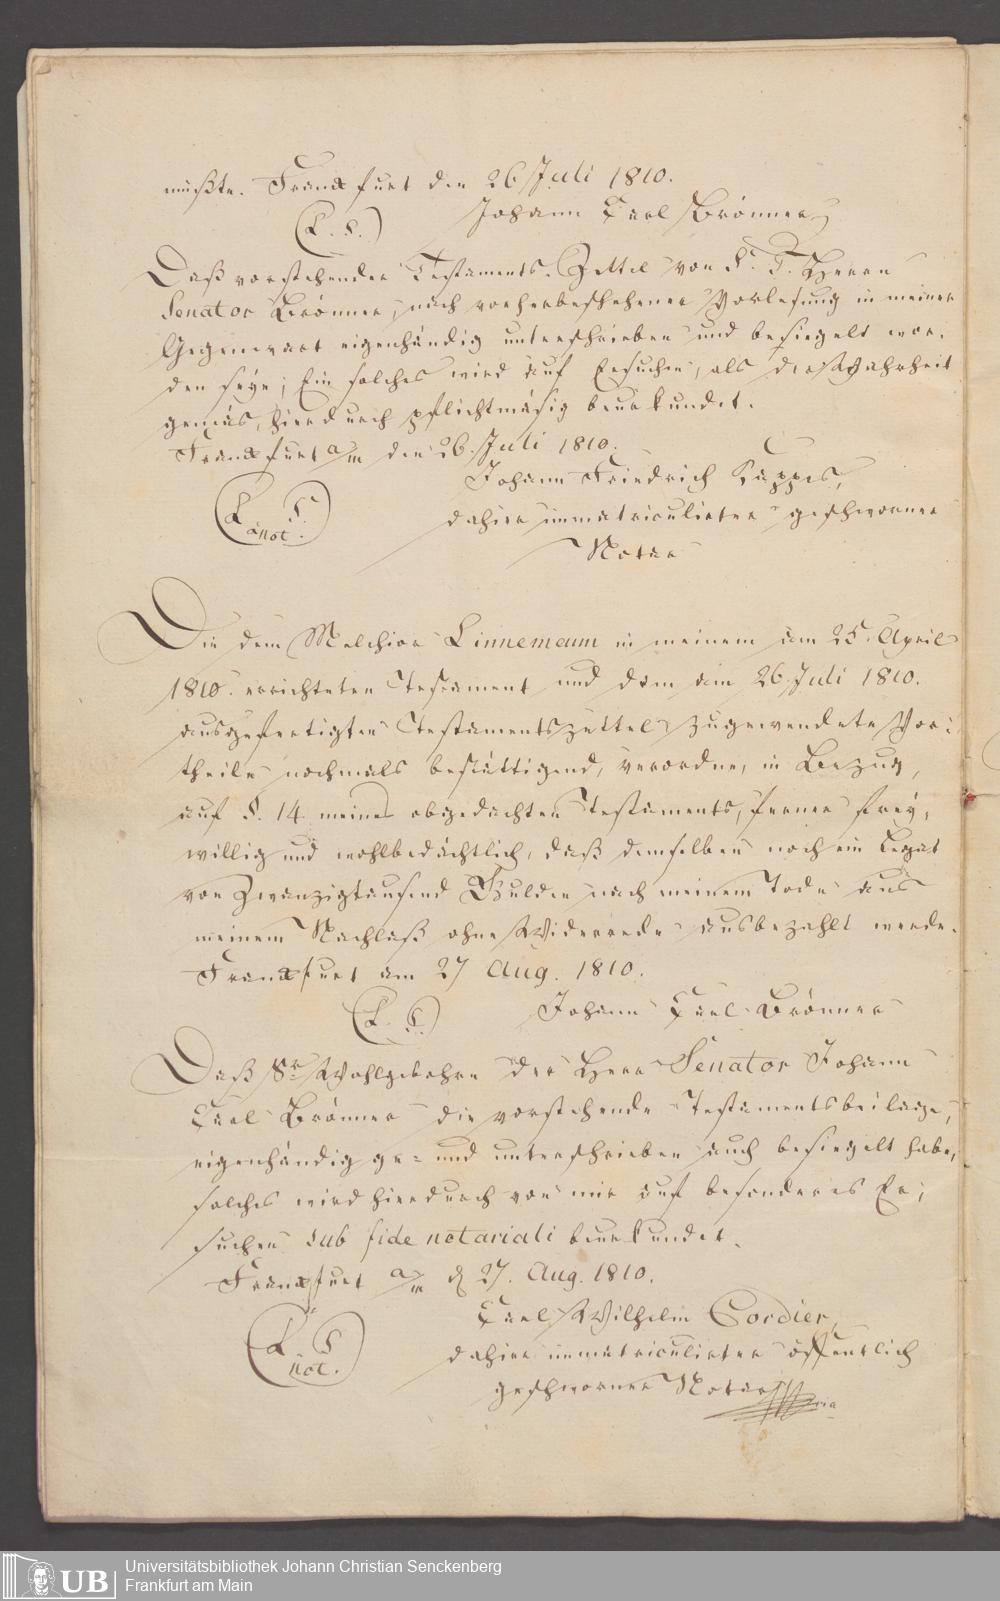 müßte. Franckfurt den 26 Juli 1810.
(L. S.) Johann Carl Brönner
Daß vorstehender Testaments-Zettel von S. T. Herrn
Senator Brönner, nach vorherbeschehener Vorlesung in meiner
Gegenwart eigenhändig unterschrieben und besiegelt wor-
den seye; Ein solches wird auf Ersuchen, als der Wahrheit
gemäs, hierdurch pflichtmäsig beurkundet.
Franckfurt a/m den 26. Juli 1810.
Johann Friedrich Kappes,
(L. S. not.) dahier immatriculirter geschworner
Notar
Die dem Melchior Linnemann in meinem am 25. April
1810. errichteten Testament und dem am 26. Juli 1810.
ausgefertigten Testamentszettel zugewendete Vor-
theile nochmals bestättigend, verordne, in Bezug,
auf §. 14 meines obgedachten Testaments, ferner frey-
willig und wohlbedächtlich, daß demselben noch ein Legat
von Zwanzigtausend Gulden nach meinem Tode aus
meinem Nachlaß ohne Widerrede ausbezahlt werde.
Franckfurt am 27 Aug. 1810.
(L. S.) Johann Carl Brönner
Daß Sr. Wohlgebohrn der Herr Senator Johann
Carl Brönner die vorstehende Testamentsbeilage,
eigenhändig ge- und unterschrieben auch besiegelt habe,
solches wird hierdurch von mir auf besonderes Er-
suchen sub fide notariali beurkundet.
Franckfurt a/m d 27. Aug. 1810.
Carl Wilhelm Cordier,
(L. S. not.) dahier immatriculirter öffentlich
geschworner Notar
Universitätsbibliothek Johann Christian Senckenberg
Frankfurt am Main
UB